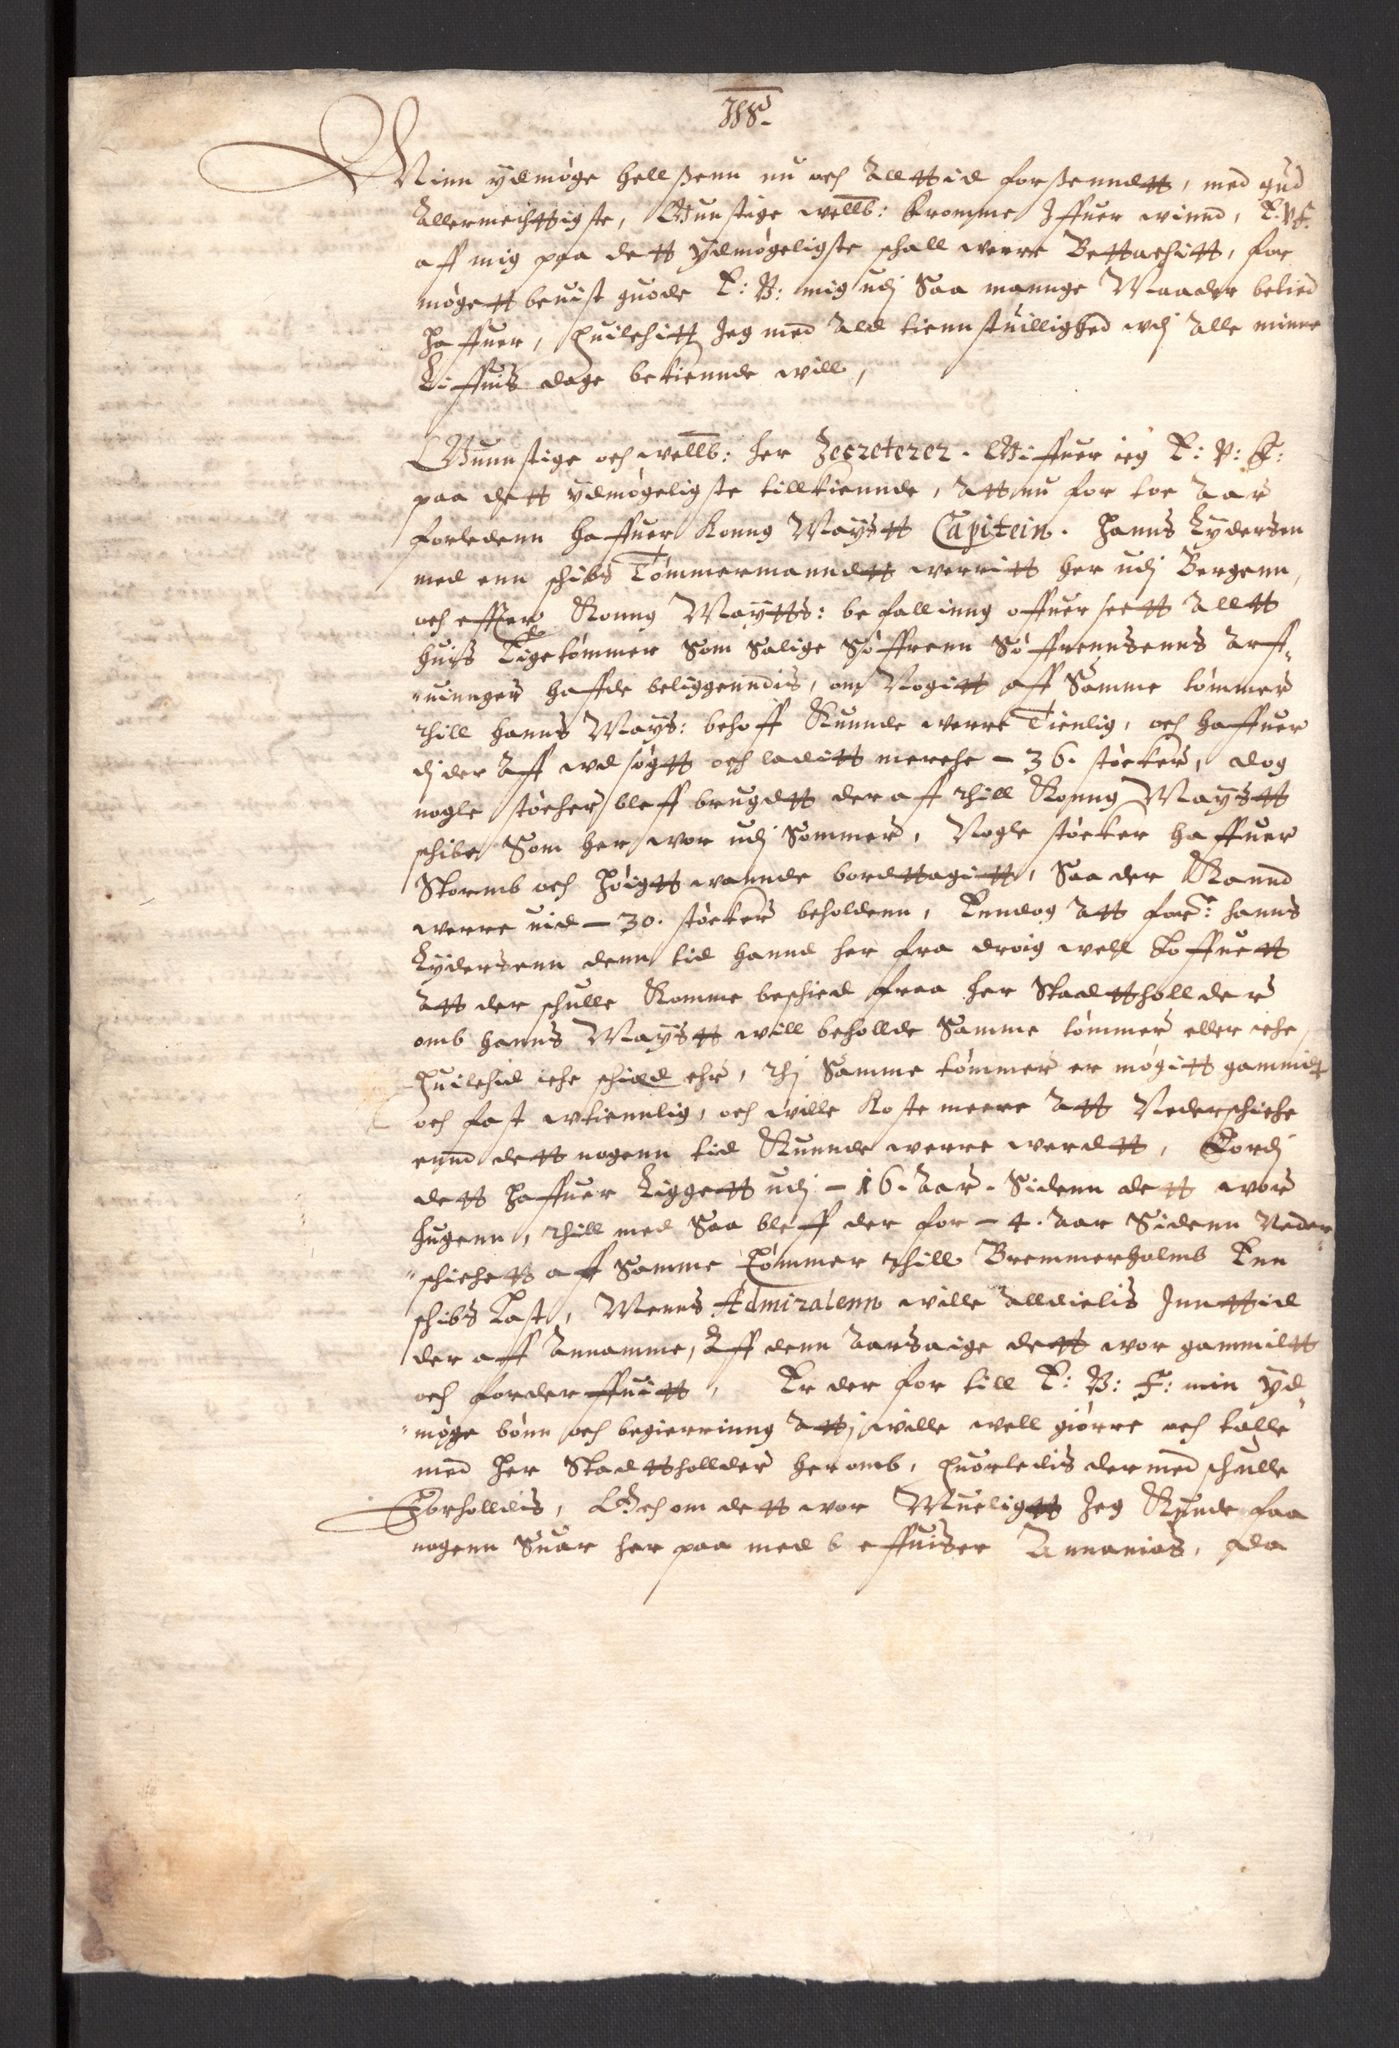 JHS.
Minn ydmøge hellssenn nu och alltid forssenndtt, med gud
allermechttigste, Gunstige wellb: fromme Iffuer winnd, E: V: F:
aff mig paa dett ydmøgeligste schall were Bettachitt, for
møgett beuist guode E: V: mig udj saa mannge Maader betied
haffuer, huilchitt Jeg med ald tiennstuillighed udj alle minne
Liffuis dage bekiennde will,
Gunnstige och wellb: her Secreterer. Giffuer ieg E: V: F:
paa dett ydmøgeligste tillkiennde, att nu for toe aar
forledenn haffuer Konng Maystt Capitein. Hanns Lydersen
med enn schibs Tømmermanndtt werritt her udj Bergenn,
och effter Konng Maytts: befallinng offuerseett alltt
huiss Egetømmer som Salige Søffrenn Søffrennsenns arff-
uinnger haffde beliggenndis, om Nogitt aff samme tømmer
thill hanns Mays: behoff kunnde werre Tienlig, och haffuer
dj der aff udsøgtt och laditt merche - 36. støcker, dog
nogle støcher bleff brugdtt der aff thill Konng Maystt
schibe som her wor udj sommer, Nogle støcker haffuer
Stormb och høigtt wannde bordttagitt, saa der kannd
werre uid - 30. støcker beholdenn, Enndog att forne: hanns
Lydersenn denn tid hannd her fra droig well loffuett
att der schulle komme beschied fraa her Stadttholder
omb hanns Maystt will behollde samme tømmer eller iche
huilchid iche schied ehr, thj samme tømmer er møgitt gammidt
och fast utiennlig, och wille koste meere att Nederschiche
ennd dett nogenn tid kunnde werre werdtt, Fordj
dett haffuer liggett udj - 16. aar. sidenn dett wor
hugenn, thill med saa bleff der for - 4. aar sidenn Neder-
schichett aff samme tømmer thill Bremmerholmb Enn
schibs Last, Menns Admiralenn wille alldielis Innttid
der aff annamme, aff denn aarsaige dett wor gammiltt
och forderffuitt, Er der for till E: V: F: min yd-
møge bønn och begierrinng att j wille well giørre och talle
med her Stadttholder her omb, huorledis dermed schulle
Forholldis, Och om dett wor Mueligtt Jeg kunde faa
nogenn Suar her paa med beffuiser Annanias, da